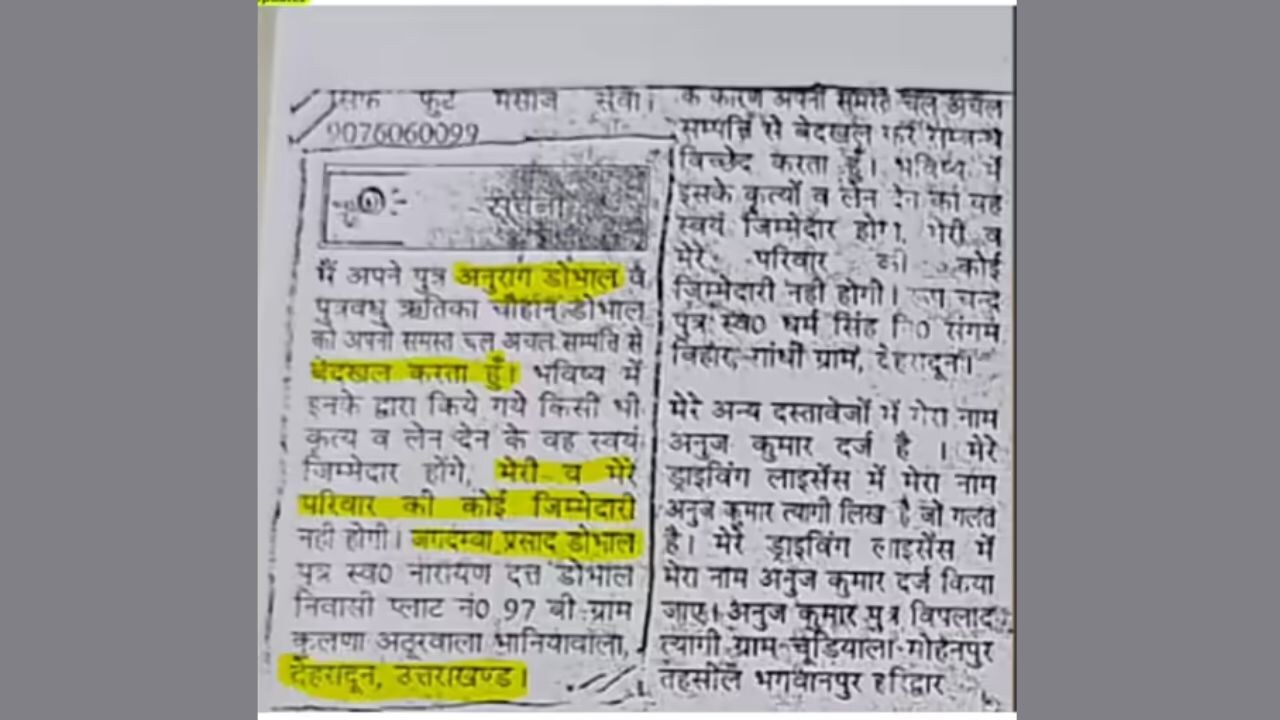 फुट मसाज सेवा।
9076060099
सूचना
मैं अपने पुत्र अनुराग डोभाल व
पुत्रवधु ऋतिका चौहान डोभाल
को अपनी समस्त चल अचल सम्पति से
बेदखल करता हूँ। भविष्य में
इनके द्वारा किये गये किसी भी
कृत्य व लेन देन के वह स्वयं
जिम्मेदार होंगे, मेरी व मेरे
परिवार की कोई जिम्मेदारी
नही होगी। जगदम्बा प्रसाद डोभाल
पुत्र स्व0 नारायण दत्त डोभाल
निवासी प्लाट नं0 97 बी ग्राम
कलणा अठूरवाला भानियावाला,
देहरादून, उत्तराखण्ड।
के कारण अपनी समस्त चल अचल
सम्पत्ति से बेदखल कर सम्बन्ध
विच्छेद करता हूँ। भविष्य में
इसके कृत्यों व लेन देन का वह
स्वयं जिम्मेदार होगा, मेरी व
मेरे परिवार की कोई
जिम्मेदारी नही होगी। चन्द
पुत्र स्व0 धर्म सिंह नि0 संगम
विहार, गांधी ग्राम, देहरादून।
मेरे अन्य दस्तावेजों में मेरा नाम
अनुज कुमार दर्ज है । मेरे
ड्राइविंग लाइसेंस में मेरा नाम
अनुज कुमार त्यागी लिख है जो गलत
है। मेरे ड्राइविंग लाइसेंस में
मेरा नाम अनुज कुमार दर्ज किया
जाए। अनुज कुमार पुत्र विपलाद
त्यागी ग्राम-चूड़ियाला-मोहनपुर
तहसील भगवानपुर हरिद्वार